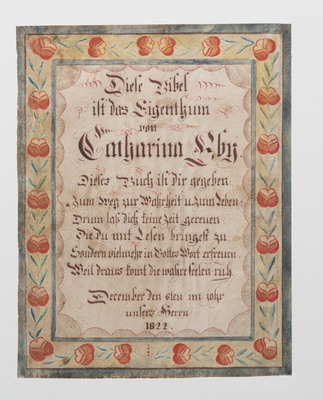 Diese Bibel
ist das Eigenthum
von
Catharina Eby.
Dieses Buch ist dir gegeben
Zum Weg zur Wahrheit u. zum Leben:
Drum laß dich keine Zeit gereuen
Die du mit Lesen bringest zu
Sondern vielmehr in Gottes Wort erfreuen
Weil draus komt die wahre seelen-ruh.
December den 8ten im jahr
unsers Herrn
1822.